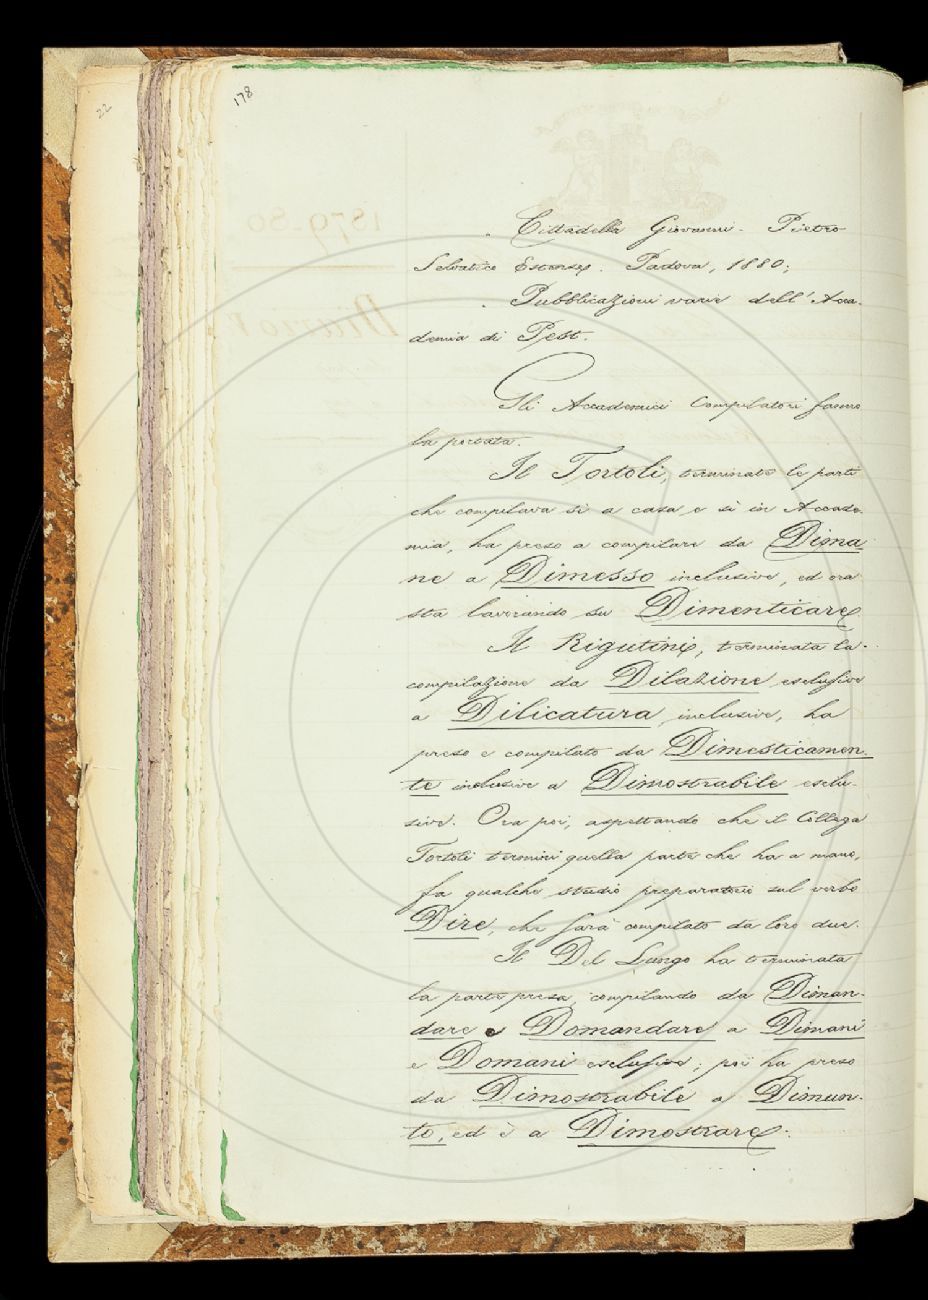 22
178
Cittadella Giovanni - Pietro
Selvatico Estense. Padova, 1880;
Pubblicazioni varie dell'Acca-
demia di Pest.
Gli Accademici Compilatori fanno
la portata.
Il Tortoli, terminate le parti
che compilava sì a casa e sì in Accade-
mia, ha preso a compilare da Dima-
ne a Dimesso inclusive, ed ora
sta lavorando su Dimenticare.
Il Rigutini, terminata la
compilazione da Dilazione esclusive
a Dilicatura inclusive, ha
preso e compilato da Dimesticamen-
te inclusive a Dimostrabile esclu-
sive. Ora poi, aspettando che il Collega
Tortoli termini quella parte che ha a mano,
fa qualche studio preparatorio sul verbo
Dire, che sarà compilato da loro due.
Il Del Lungo ha terminata
la parte presa, compilando da Diman-
dare e Domandare a Dimani
e Domani esclusive; poi ha preso
da Dimostrabile a Dimun-
to, ed è a Dimostrare.
1879-80
Diario